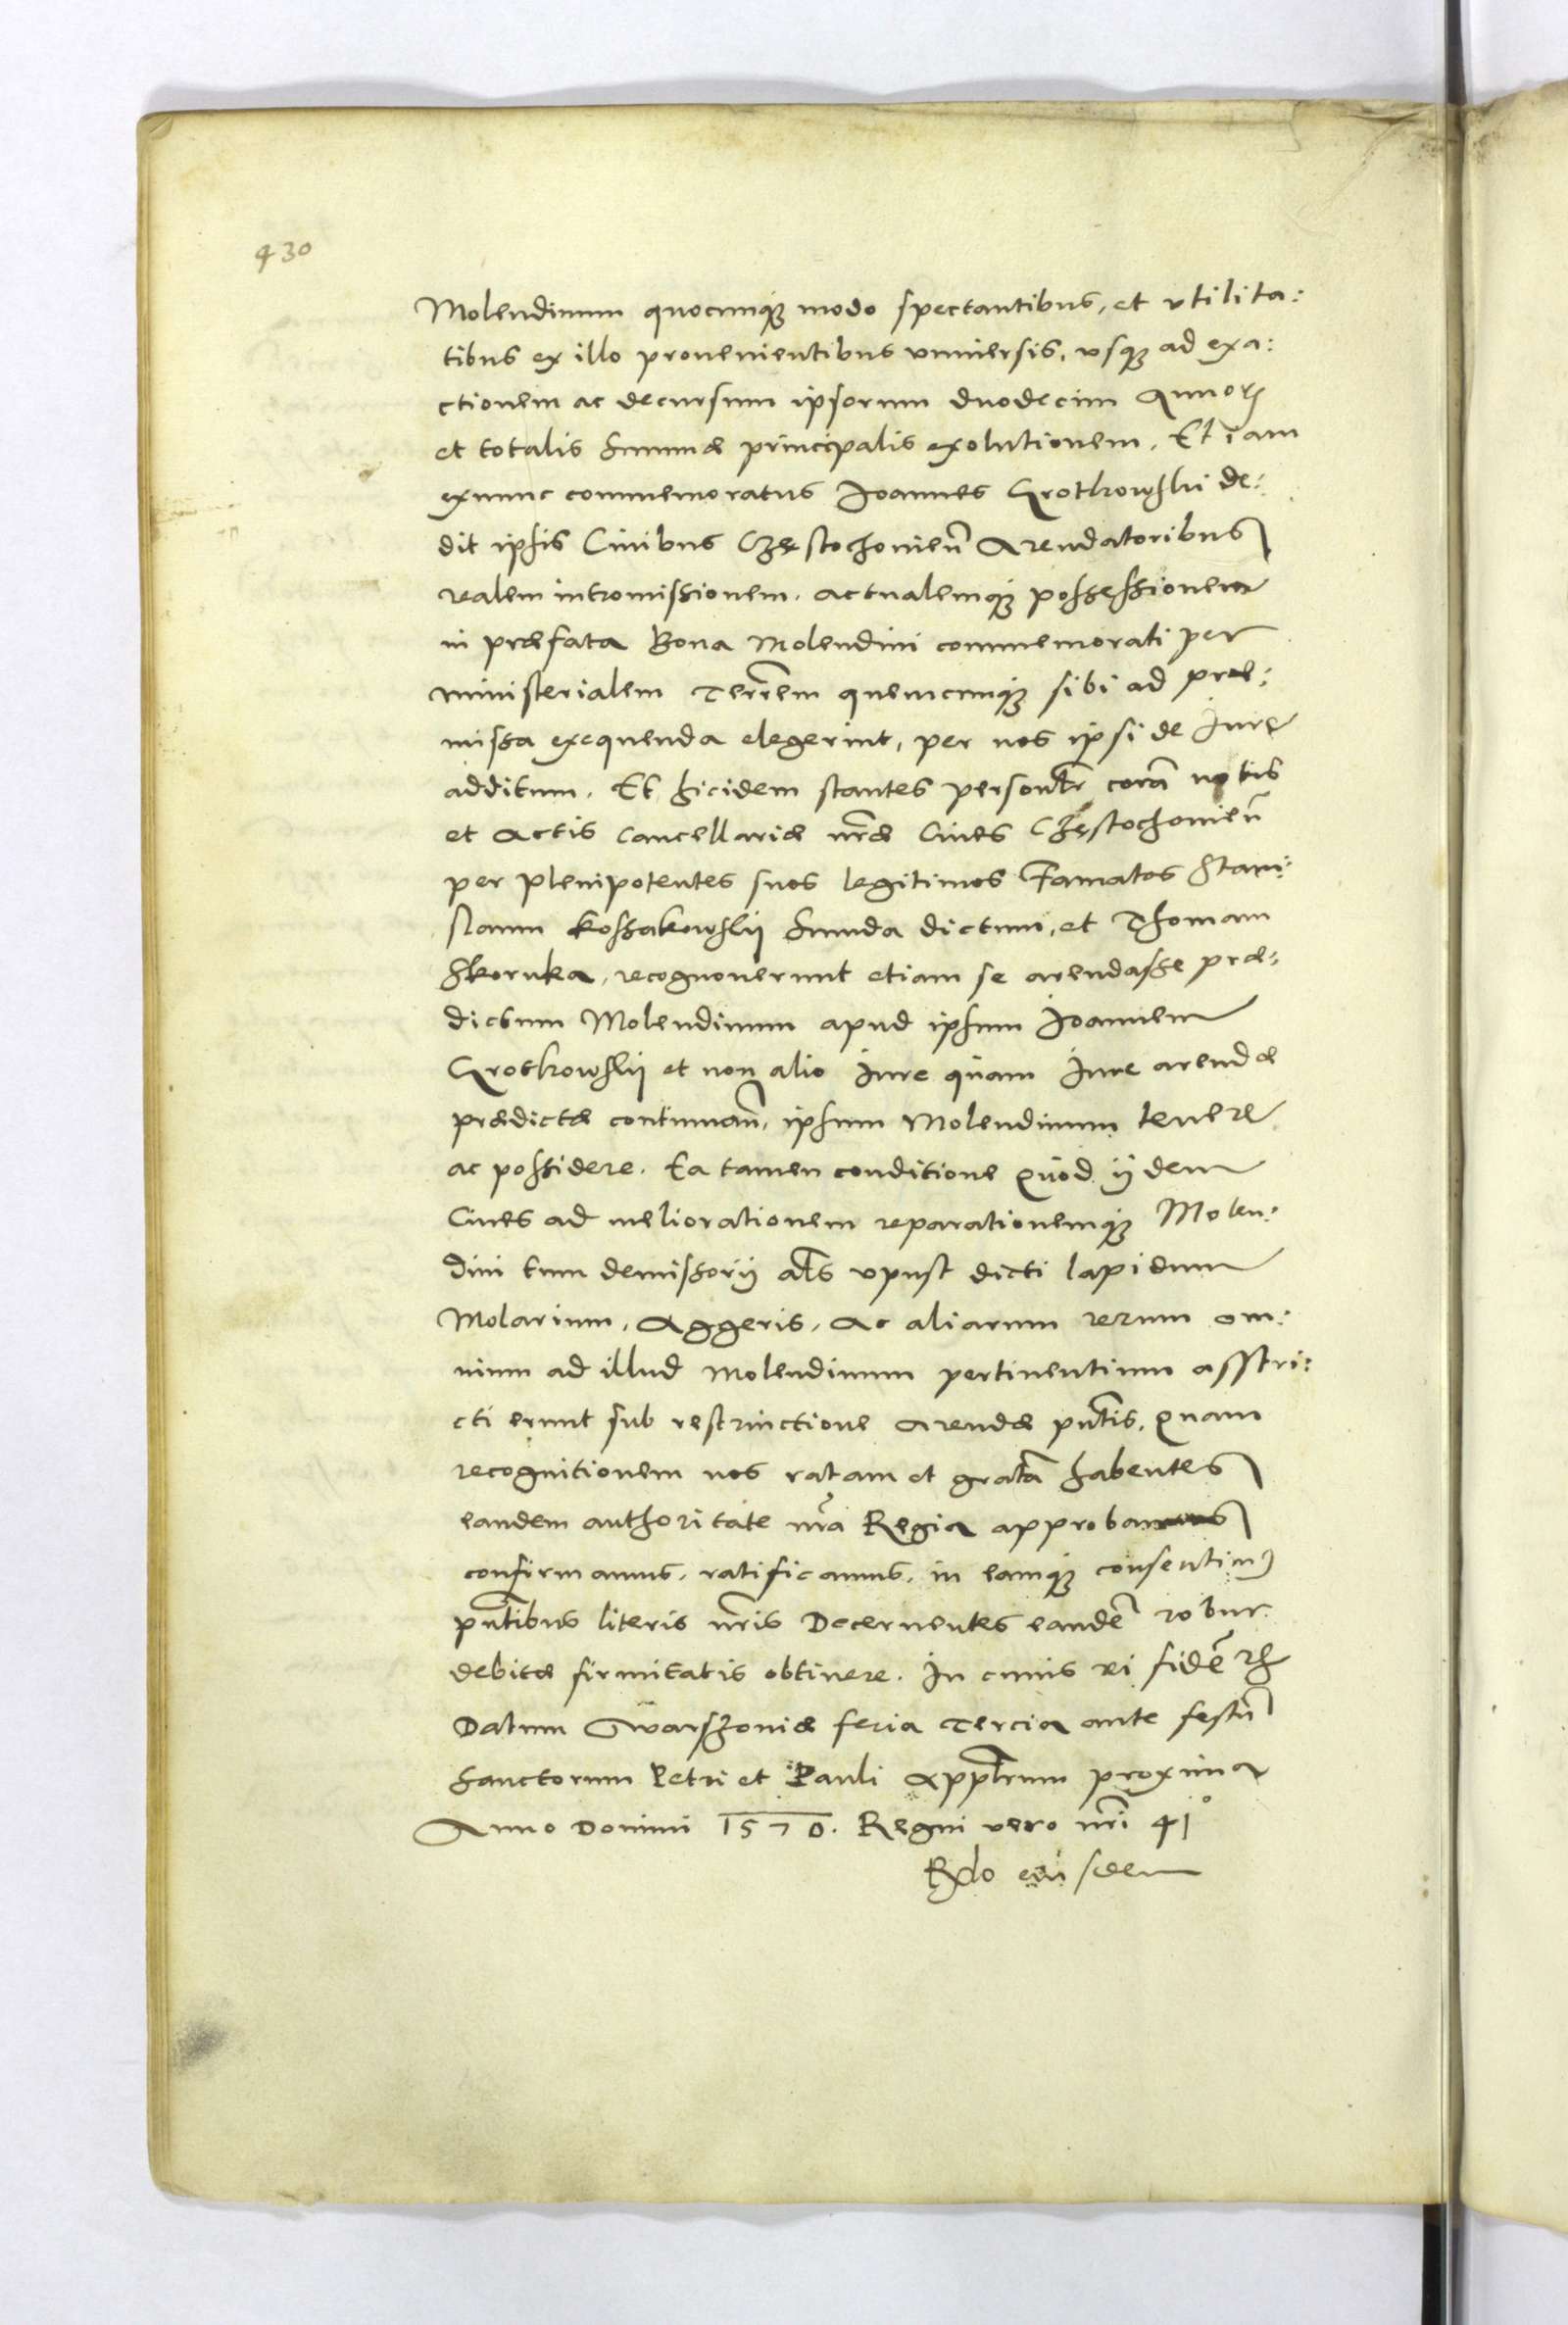 430
Molendinum quocunq3 modo spectantibus, et vtilita:
tibus ex illo prouenientibus vniuersis, vsq3 ad exa:
ctionem ac decursum ipsorum duodecim Annoꝝ
et totalis summæ principalis exolutionem. Et iam
exnunc commemoratus Joannes Grotkowski de:
dit ipsis Ciuibus Częstochouieñ Arendatoribus
realem intromissionem. actualemq3 possessionem
in præfata Bona Molendini commemorati per
ministerialem Terrem quemcunq3 sibi ad præ:
missa exequenda elegerint, per nos ipsi de Jure
additum. Et hicidem stantes personlr corã nobis
et Actis Cancellariæ nræ Ciues Częstochouieñ
per Plenipotentes suos legitimos Famatos Stani:
slaum Kossakowskij Smuda dictum, et Thomam
Skoruka, recognouerunt etiam se arendasse præ:
dictum Molendinum apud ipsum Joannem
Grotkowskij et non alio Jure quam Jure arendæ
prædictæ continuañ, ipsum Molendinum tenere
ac possidere. Ea tamen conditione quod ijdem
Ciues ad meliorationem reparationemq3 Molen:
dini tum demissorij als vpust dicti lapidum
Molarium, Aggeris, Ac aliarum rerum om:
nium ad illud Molendinum pertinentium asstri:
cti erunt sub restrinctione Arendæ pntis. quam
recognitionem nos ratam et gratã habentes
eandem authoritate nra Regia approbamus
confirmamus, ratificamus, in eamq3 consentimꝰ
pntibus literis nris Decernentes eandẽ robur
debitæ firmitatis obtinere. In cuius rei fidẽ ꝛc
Datum Warszouiæ feria Tercia ante festũ
Sanctorum Petri et Pauli Appłrum proxima
Anno Domini 1570. Regni vero nri 41°
Rlo eiusdem